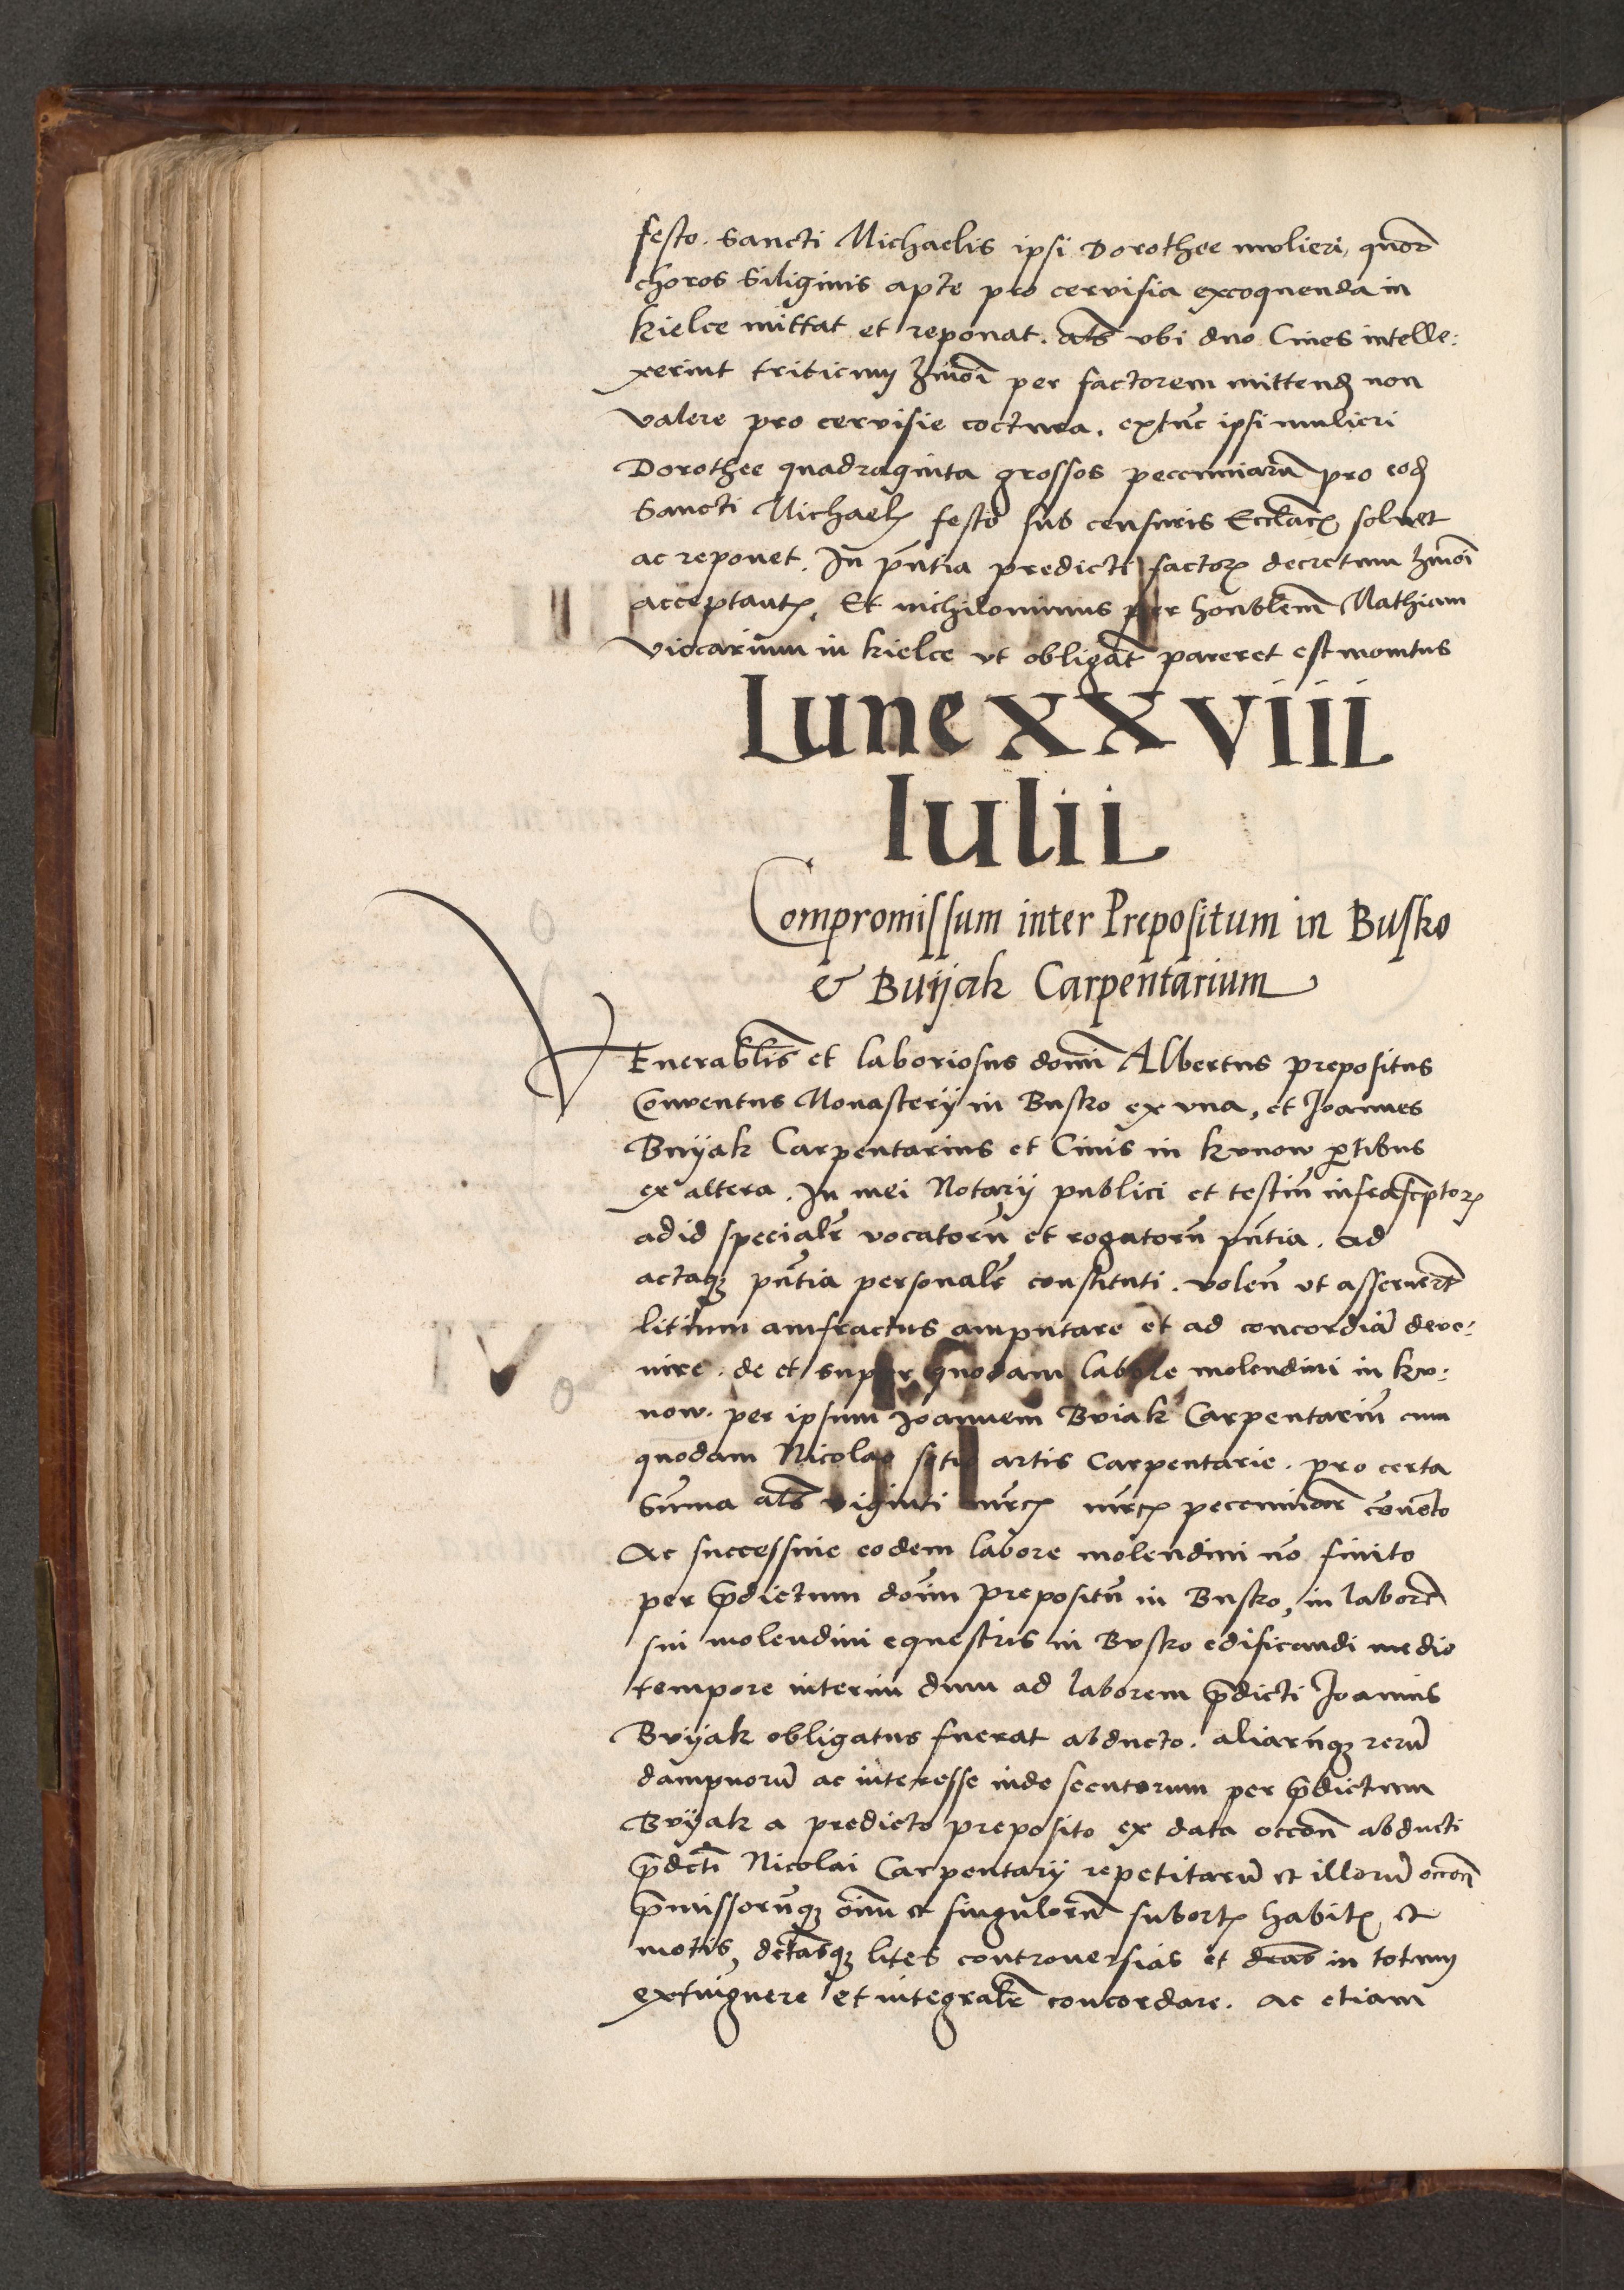 festo. Sancti Michaelis ipsi Dorothee mulieri, quatuor
choros Siliginis apte pro cervisia excoquenda in
kielce mittat et reponat. als ubi duo Cives intelle:
xerint triticum hmoi per factorem mittend non
valere pro cervisie coctura. extunc ipsi mulieri
Dorothee quadraginta grossos pecuniarū pro eod
Sancti Michael festo sub censuris Ecclac solvet
ac reponet. In pntia predicti factor decretum hmoi
acceptant. Et nichilominus per honblem Mathiam
vicarium in kielce ut obligat pareret est monitus
Lune XXVIII
Iulii
Compromissum inter Prepositum in Busko
& Buijak Carpentarium
VEnerablis et laboriosus domi Albertus prepositus
Conventus Monasterij in Busko ex una, et Joannes
Buijak Carpentarius et Civis in kunow ptibus
ex altera. In mei Notarij publici et testiū infrascptor
ad id specialr vocatorū et rogatorū pntia. ad
actaq pntia personalr constituti. volen ut asseruert
litium amfractus amputare et ad concordiā deve:
nire. de et super quodam labore molendini in ku:
now. per ipsum Joannem Buiak Carpentariū cum
quodam Nicolao artis Carpentarie. pro certa
Sūma als viginti mrc mrc pecuniar convēto
Ac successive eodem labore molendini nō finito
per pdictum domi prepositū in Busko, in laborē
sui molendini equestris in Busko edificandi medio
tempore interim dum ad laborem pdicti Joannis
Buijak obligatus fuerat abducto. aliarūq rerū
dampnorū ac interesse inde secutorum per pdictum
Buijak a predicto preposito ex data occone abducti
pdcti Nicolai Carpentarij repetitarū et illorū occone
pmissorūq oīm et singulorū subort habit et
motis, dctasq lites controversias et dcas in totum
extinguere et integralr concordare. ac etiam